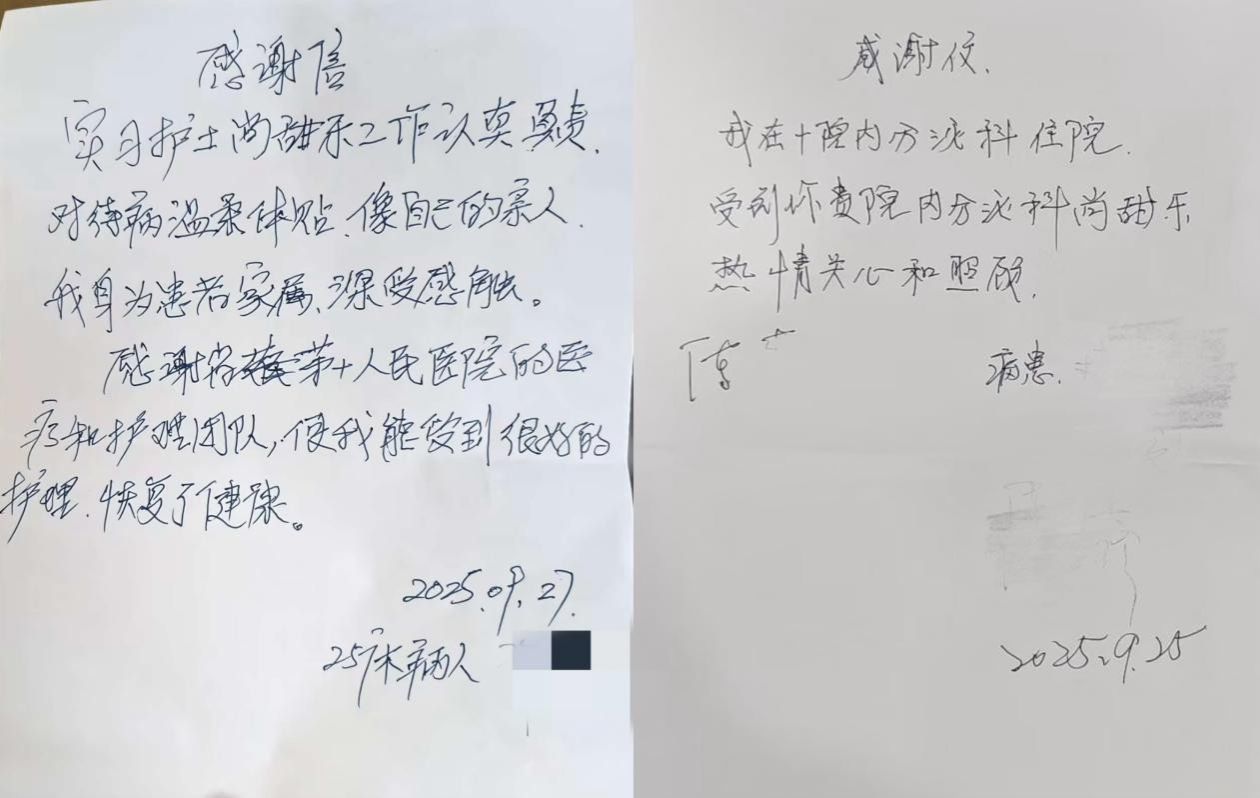 感谢信
实习护士尚甜乐工作认真负责.
对待病温柔体贴.像自己的亲人.
我身为患者家属、深受感触。
感谢第十人民医院的医
疗和护理团队,使我能受到很好的
护理.恢复了健康。
2025.09.27.
25床病人
感谢信.
我在十院内分泌科住院.
受到你贵院内分泌科尚甜乐
热情关心和照顾.
病患.
2025.9.25